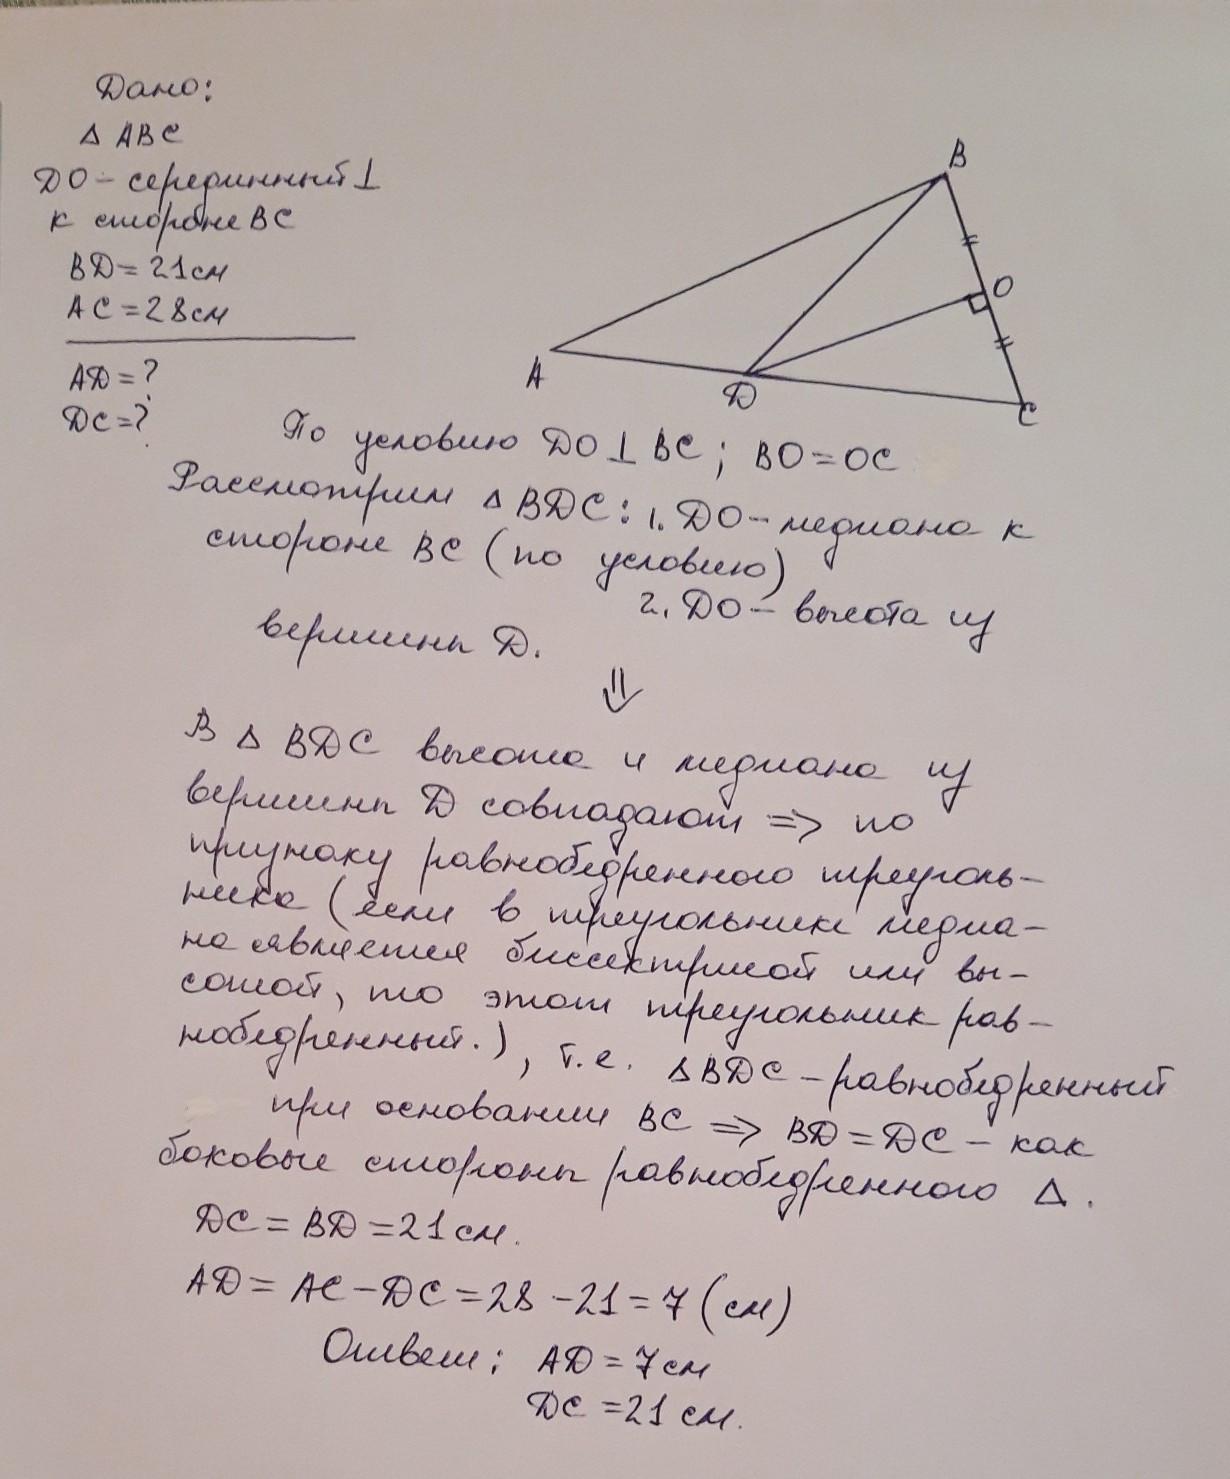 Дано:
Δ ABC
DO – серединный ⊥
к стороне BC
BD = 21 см
AC = 28 см
AD = ?
DC = ?
B
O
A
D
C
По условию DO ⊥ BC ; BO = OC
Рассмотрим Δ BDC : 1. DO – медиана к
стороне BC (по условию)
2. DO – высота из
вершины D.
⇓
В Δ BDC высота и медиана из
вершины D совпадают => по
признаку равнобедренного треуголь-
ника (если в треугольнике медиа-
на является биссектрисой или вы-
сотой, то этот треугольник рав-
нобедренный.), т.е. Δ BDC – равнобедренный
при основании BC => BD = DC – как
боковые стороны равнобедренного Δ.
DC = BD = 21 см.
AD = AC – DC = 28 – 21 = 7 (см)
Ответ: AD = 7 см
DC = 21 см.